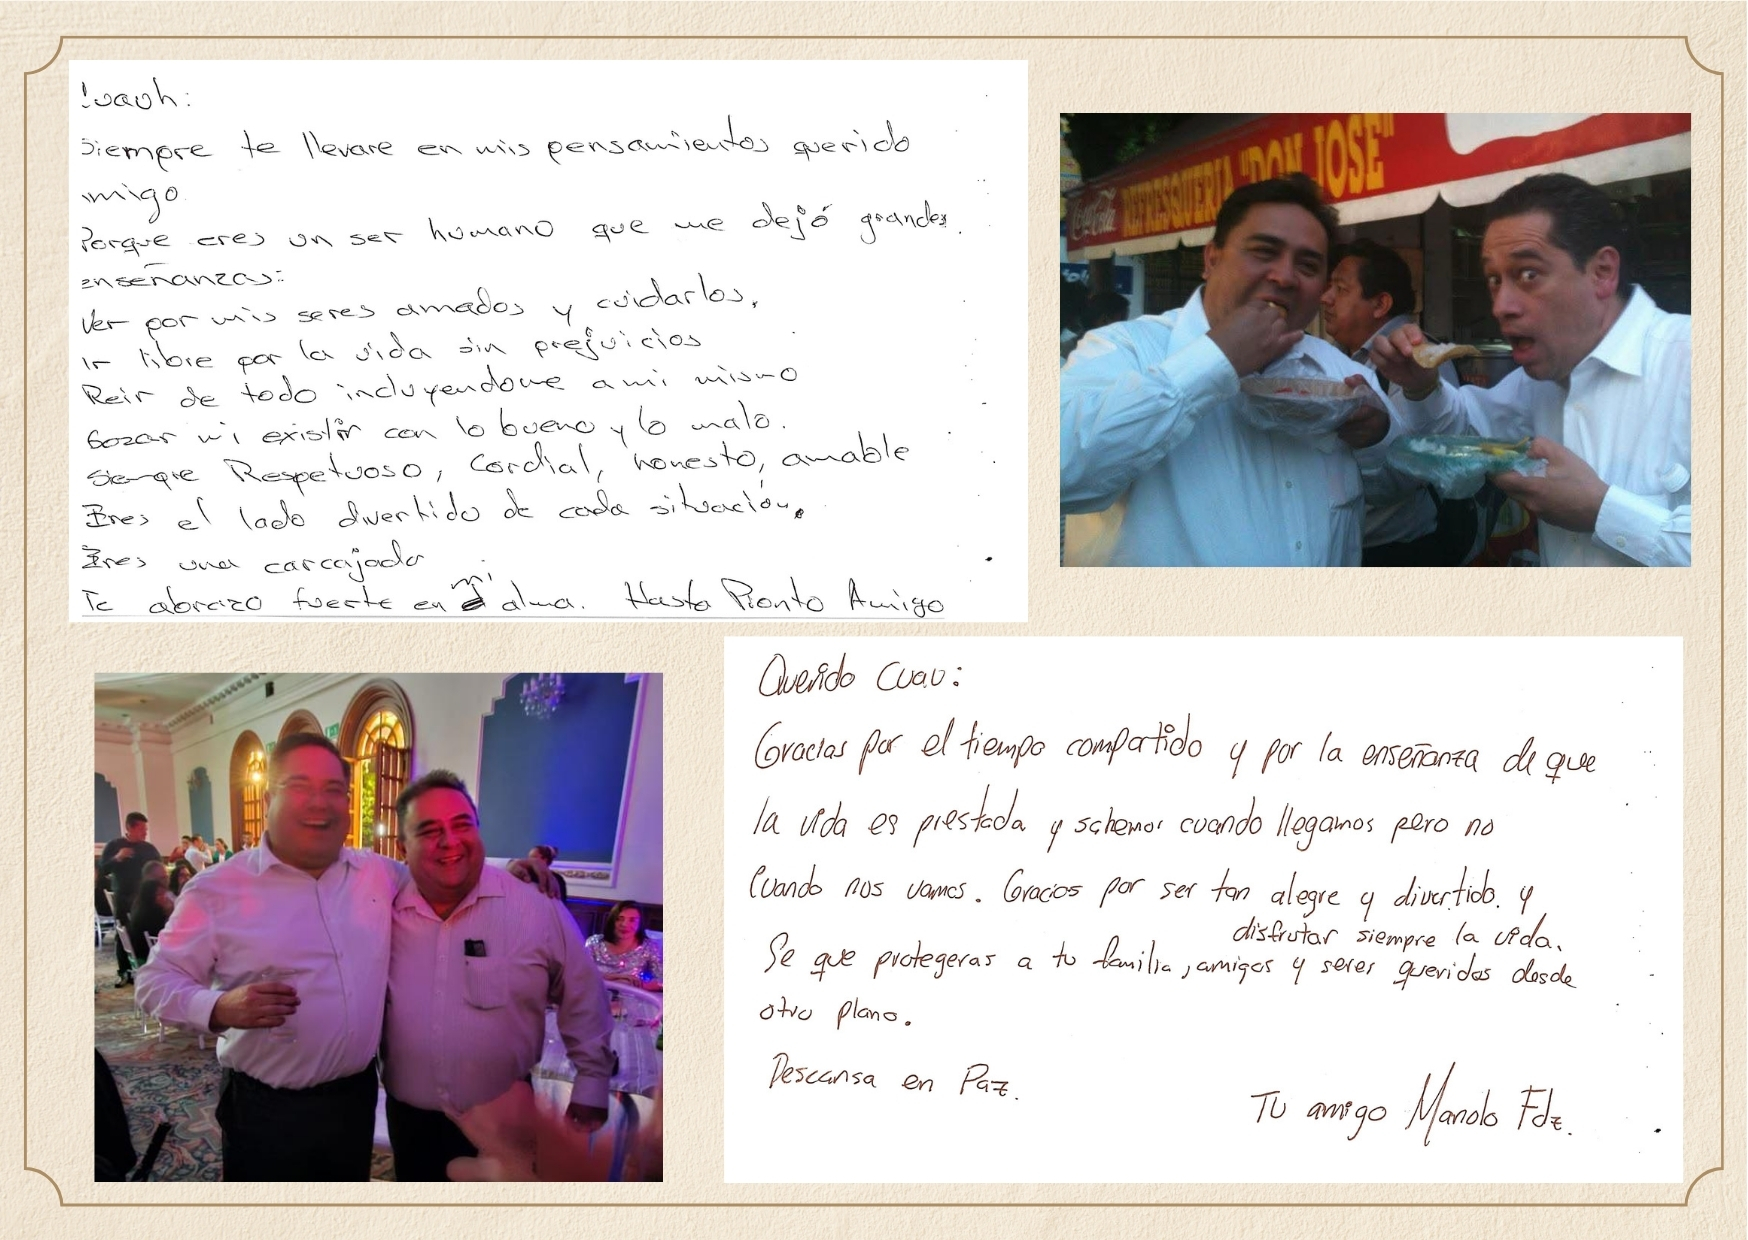 !uauh:
Siempre te llevare en mis pensamientos querido
amigo
Porque eres un ser humano que me dejó grandes.
enseñanzas:
Ver por mis seres amados y cuidarlos.
Ir libre por la vida sin prejuicios
Reir de todo incluyendome a mi mismo
Gozar mi existir con lo bueno y lo malo.
Siempre Respetuoso, Cordial, honesto, amable
Eres el lado divertido de cada situación.
Eres una carcajada
Te abrazo fuerte en mi alma. Hasta Pronto Amigo
Coca-Cola
REFRESQUERIA "DON JOSE"
Querido Cuau:
Gracias por el tiempo compartido y por la enseñanza de que
la vida es prestada y sabemos cuando llegamos pero no
Cuando nos vamos. Gracias por ser tan alegre y divertido. y
disfrutar siempre la vida.
Se que protegeras a tu familia, amigos y seres queridos desde
otro plano.
Descansa en Paz.
Tu amigo Manolo Fdz.